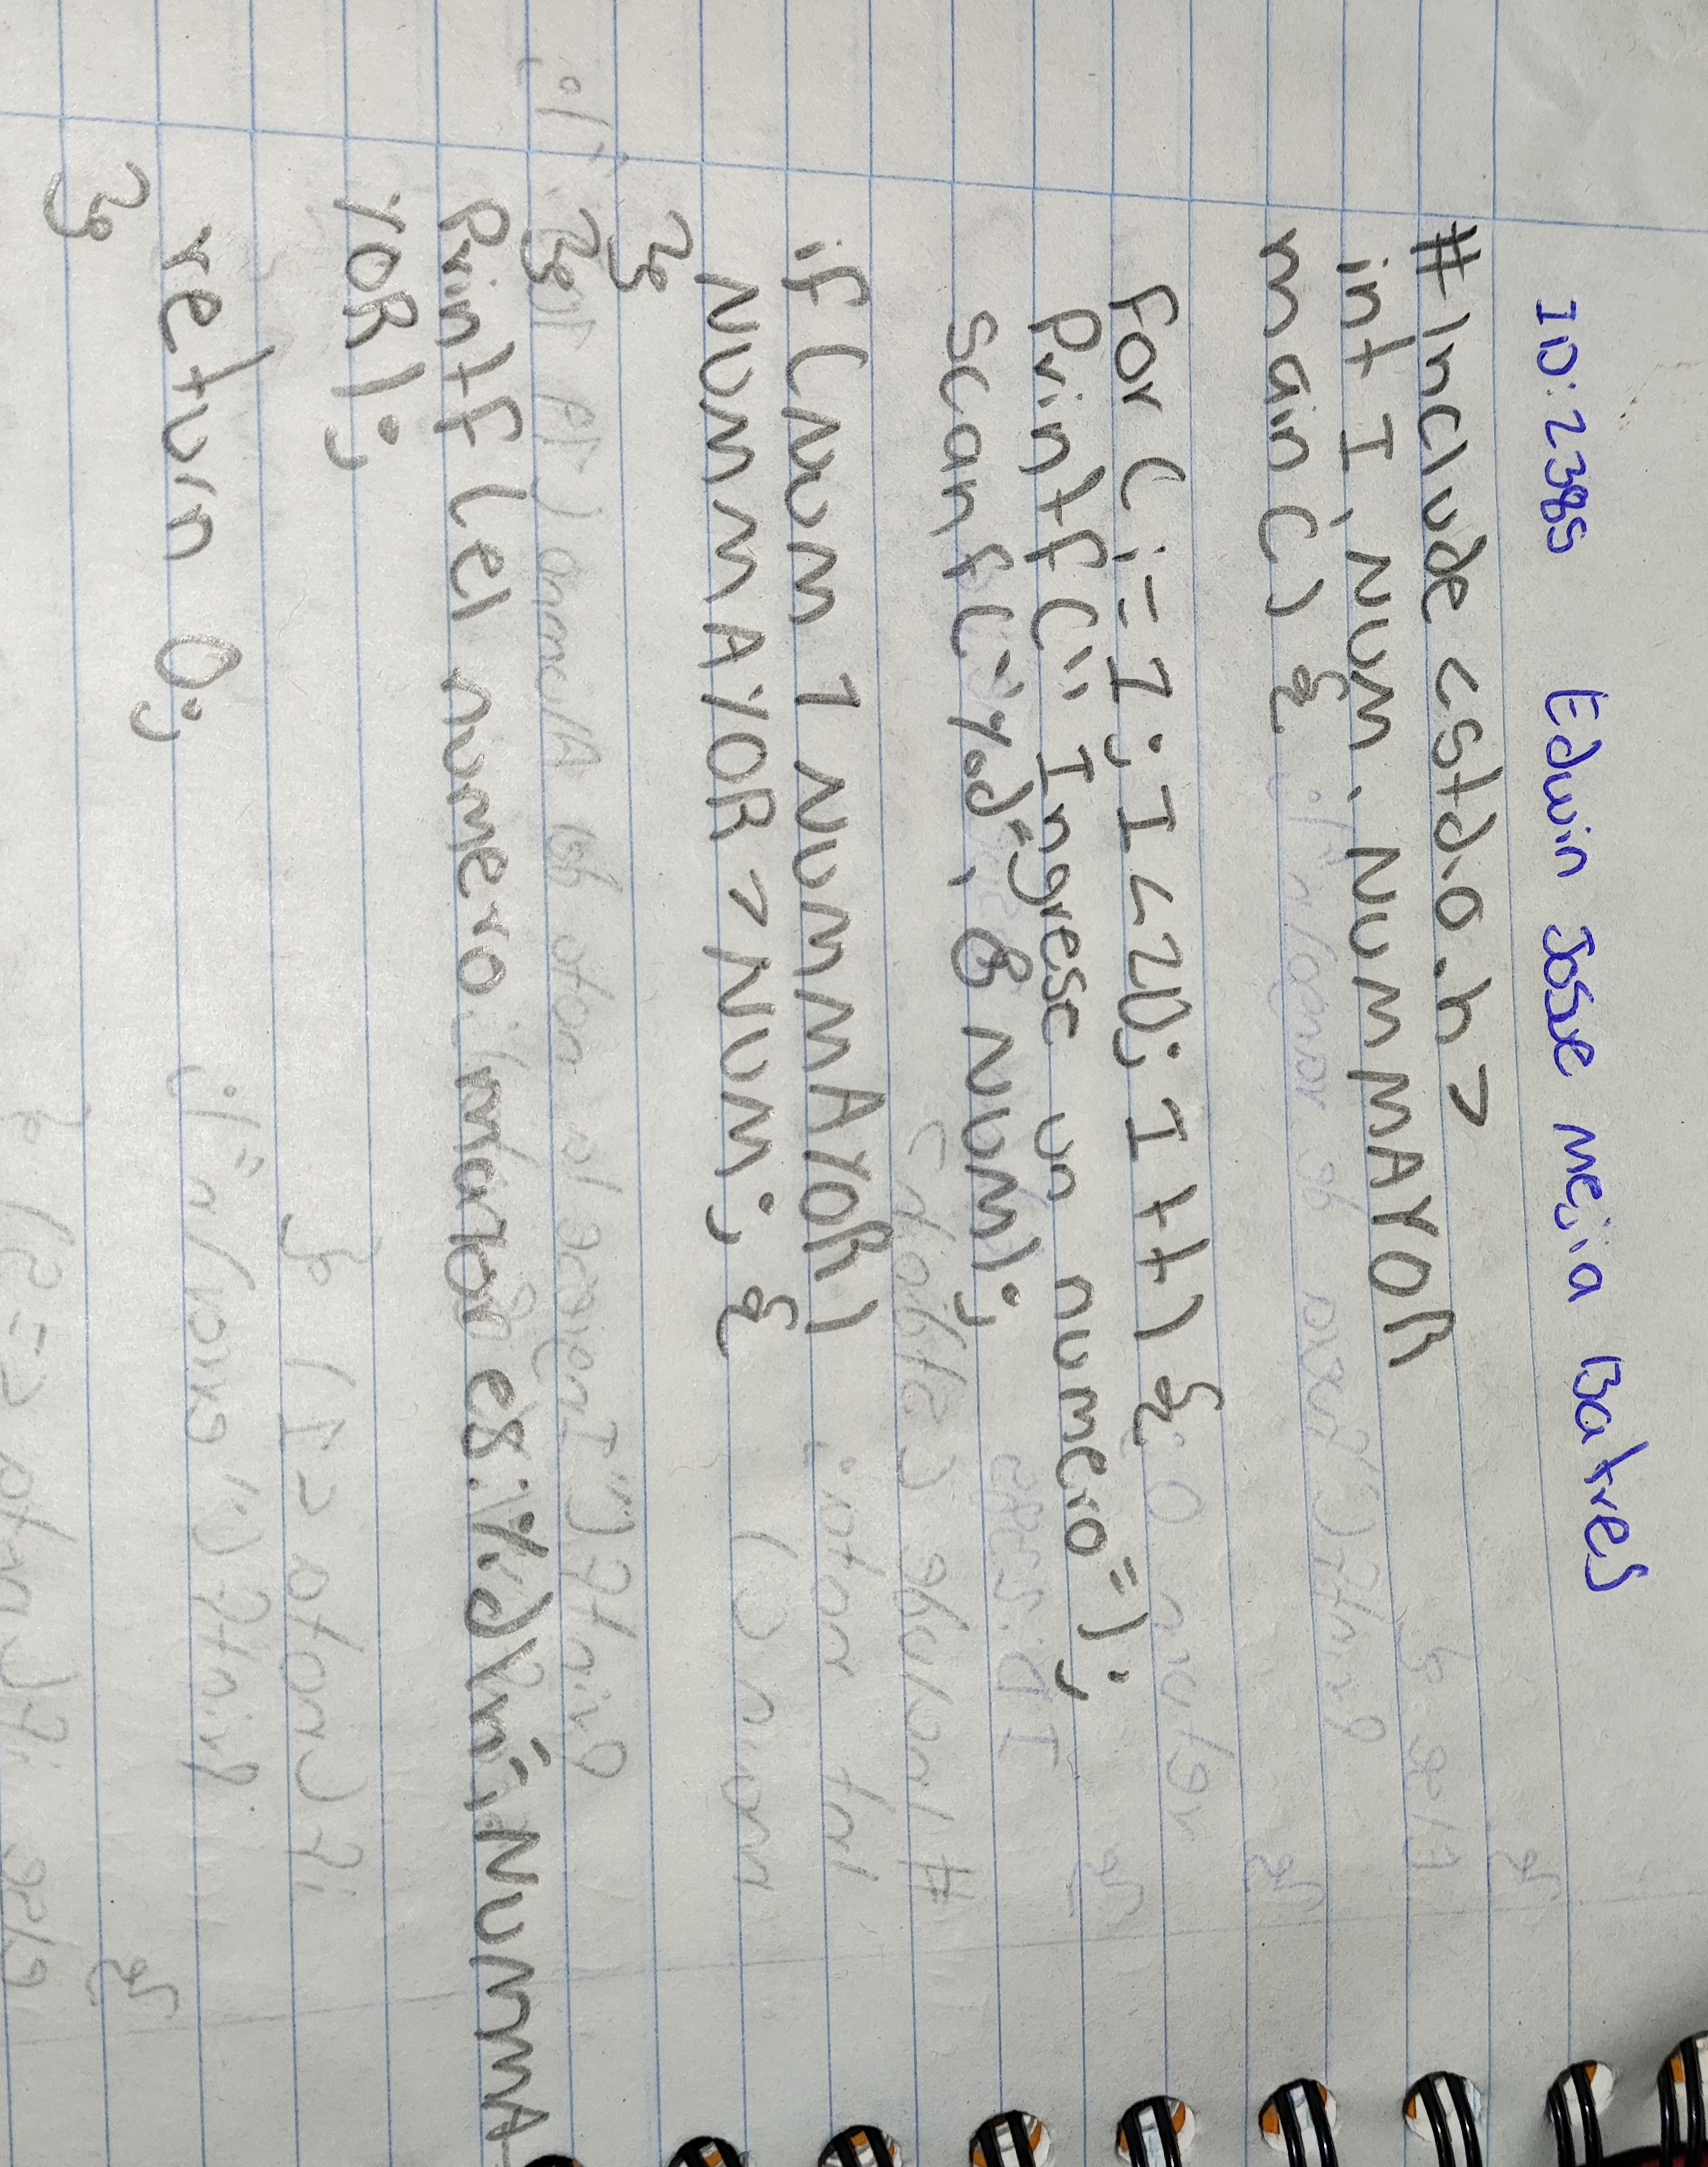 ID: 2385 Edwin Josue mejia Batres
#Include <std.o.h>
int I, NUM. NUMMAYOR
main () {
for (i=1; I<20; I++) {
Printf (" Ingrese un numero");
scanf ("%d", & NUM);
if (NUM 1 NUMMAYOR)
NUMMAYOR > NUM; {
}
}
Printf (el numero mayor es: %d\n", NUMMA
YOR);
return 0;
}